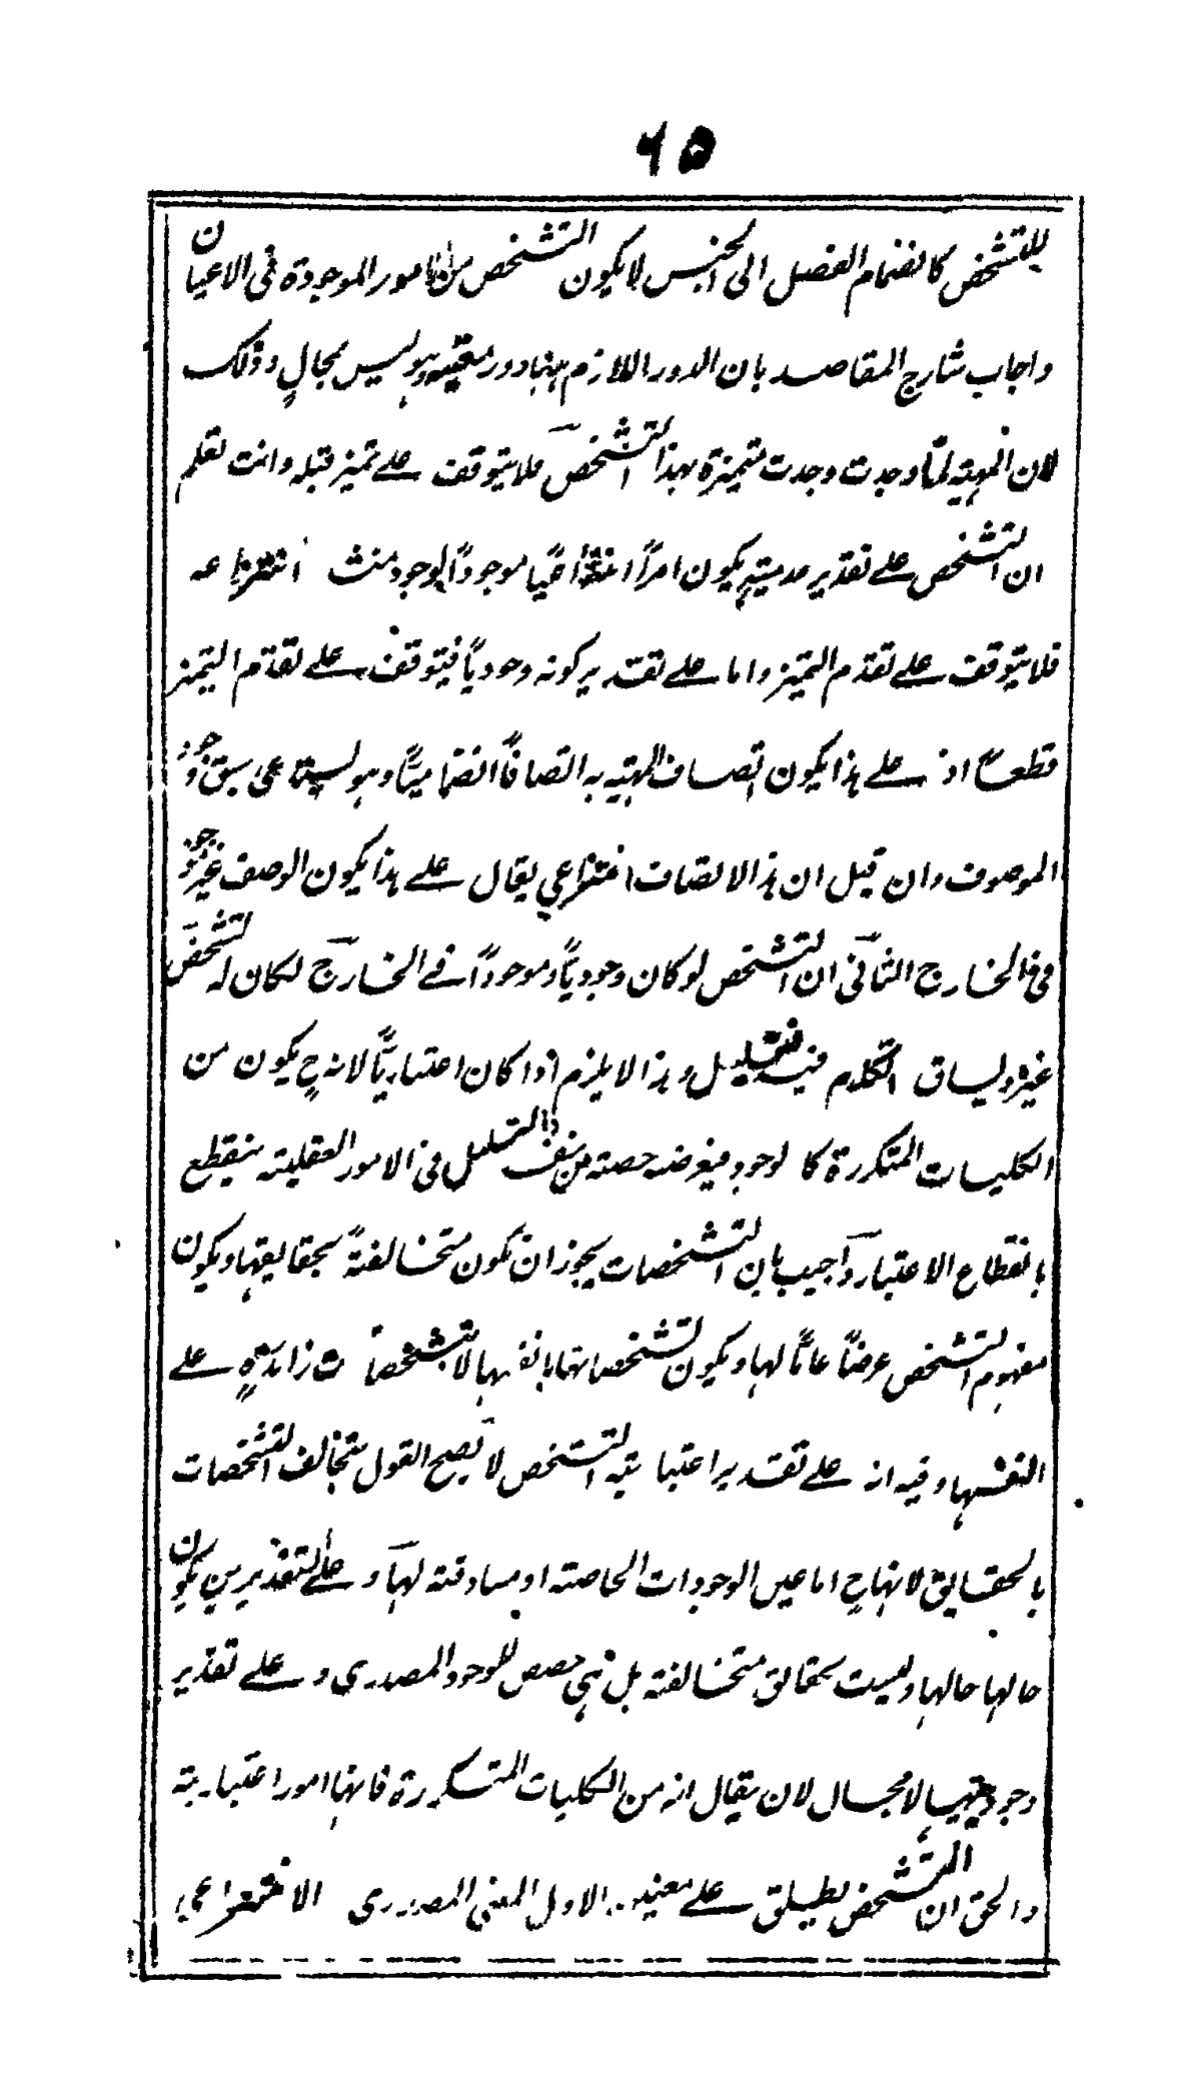 ٦٥
للتشخص كانضمام الفصل الى الجنس لا يكون التشخص من الامور الموجودة فى الاعيان
واجاب شارح المقاصد بان الدور اللازم ههنا دور معية وهو ليس بمحالٍ وذلك
لان المهية لما وجدت وجدت متميزة بهذا التشخص فلا يتوقف على تميز قبله وانت تعلم
ان التشخص على تقدير عدميته يكون امراً انتزاعياً موجوداً بوجود منشأ انتزاعه
فلا يتوقف على تقدم التميز واما على تقدير كونه وجودياً فيتوقف على تقدم التميز
قطعاً اذ على هذا يكون اتصاف المهية به اتصافاً انضمامياً وهو يستدعى سبق وجود
الموصوف وان قيل ان هذا الاتصاف انتزاعي يقال على هذا يكون الوصف غير موجود
فى الخارج الثانى ان التشخص لو كان وجودياً وموجوداً فى الخارج لكان له تشخص
غيره ويساق الكلام فيه فيتسلسل وهذا لا يلزم اذا كان اعتبارياً لانه ح يكون من
الكليات المتكررة كالوجود فيعرضه حصته من نفسه والتسلسل فى الامور العقلية ينقطع
بانقطاع الاعتبار واجيب بان التشخصات يجوز ان تكون متخالفةً بحقايقها ويكون
مفهوم التشخص عرضاً عاماً لها ويكون تشخصاتها بانفسها لا بتشخصات زائدةٍ على
انفسها وفيه انه على تقدير اعتبارية التشخص لا يصح القول بتخالف التشخصات
بالحقايق لانها ح اما عين الوجودات الخاصة او مساوقة لها وعلى التقديرين يكون
حالها حالها وليست بحقائق متخالفة بل هى حصص للوجود المصدرى وعلى تقدير
وجوديتها لا مجال لان يقال انه من الكليات المتكررة فانها امور اعتبارية
والحق ان التشخص يطلق على معنيين الاول المعنى المصدرى الانتزاعى